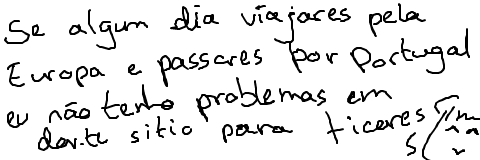 Se algum dia viajares pela
Europa e passares por Portugal
eu não tenho problemas em
dar-te sitio para ficares